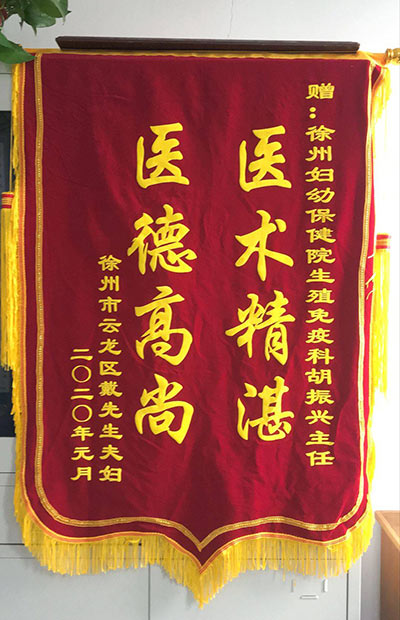 赠：徐州妇幼保健院生殖免疫科胡振兴主任
医术精湛
医德高尚
徐州市云龙区戴先生夫妇
二〇二〇年元月